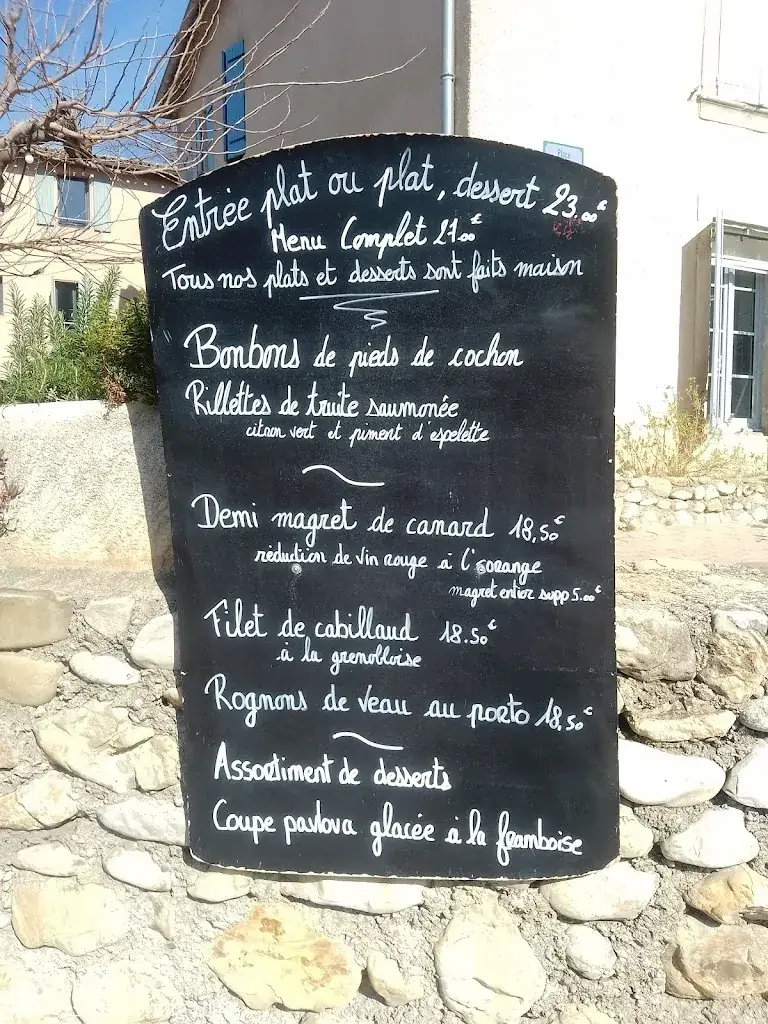 Place
Entrée plat ou plat, dessert 23.00€
Menu Complet 27.00€
Tous nos plats et desserts sont faits maison
Bonbons de pieds de cochon
Rillettes de truite saumonée
citron vert et piment d'espelette
Demi magret de canard 18,50€
réduction de vin rouge à l'orange
magret entier supp 5.00€
Filet de cabillaud 18.50€
à la grenobloise
Rognons de veau au porto 18,50€
Assortiment de desserts
Coupe pavlova glacée à la framboise